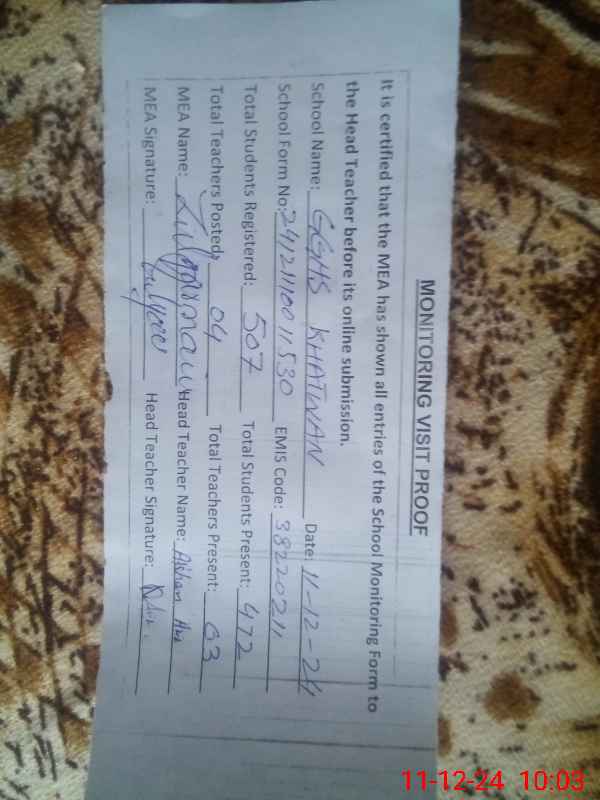 MONITORING VISIT PROOF
It is certified that the MEA has shown all entries of the School Monitoring Form to
the Head Teacher before its online submission.
School Name: GGHS KHATWAN Date: 11-12-24
School Form No: 241211001530 EMIS Code: 38220211
Total Students Registered: 507 Total Students Present: 472
Total Teachers Posted: 04 Total Teachers Present: 03
MEA Name: Head Teacher Name:
MEA Signature: Head Teacher Signature:
11-12-24 10:03